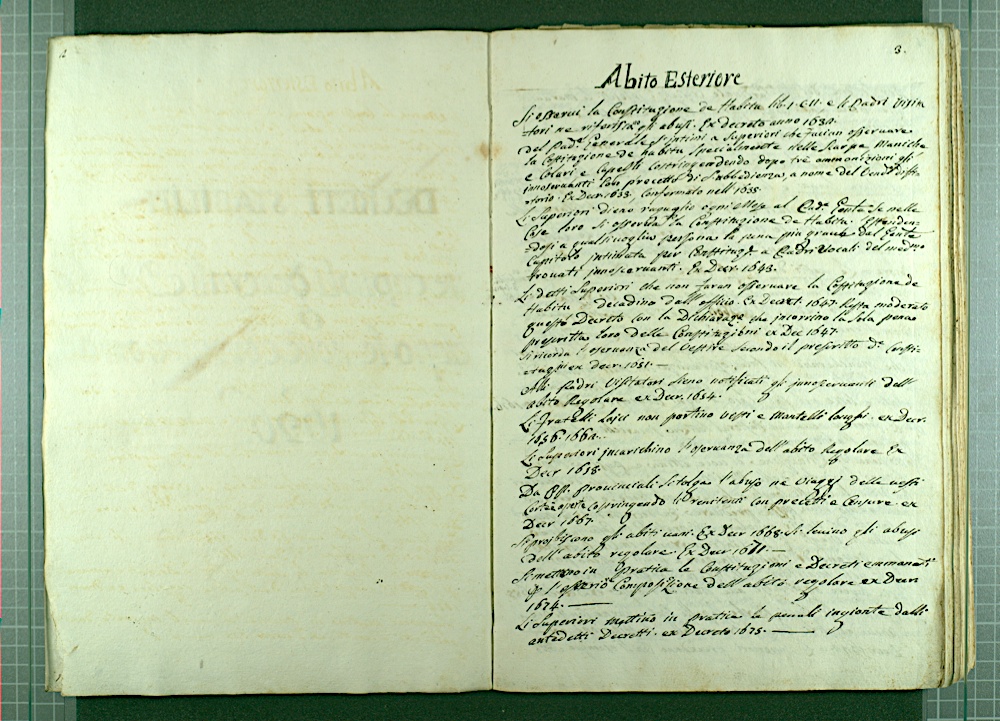 3.
Abito Esteriore
Si osservi la Constitutione de Habitu lib. 1. c. 11. e li Padri Visita
tori ne riferiscan gli abusi. Ex decreto anno 1632.
del Padre Generale s'intimi a Superiori che facian osservare
la Costitutione de habitu specialmente nelle scarpe Maniche
e Colari e Capelli costringendendo dopo tre ammonizioni gli
innoservanti con precetto di S. ubbedienza, a nome del Vend. Diffi
torio. Ex Decr. 1633. Confermato nell 1635.
Li Superiori dieno raguaglio ogni Mese al Padre Gente se nelle
Case loro si osserva la Constitutione de Habitu. Estenden-
dosi a qualsivoglia persona la pena più grave del Gente
Capitolo intimata per Constitut. a Padri Vocali del medmo
trovati innoservanti. Ex Decr. 1645.
Li detti Superiori che non faran osservare la Costitutione de
Habitu decadino dall'officio. Ex Decret. 1647. Resta moderato
questo Decreto con la Dichiaraze che incorrino la sola pena
prescritta loro delle Constitutioni ex Dec 1647.
Si ricorda l'osservanza del Vestire secondo il prescritto de Consti-
tutioni ex decr. 1651.—
Alli Padri Visitatori sieno notificati gli innoservanti dell'
abito Regolare ex Decr. 1654.
Li Fratelli Laici non portino vesti e mantelli longhi. ex Decr.
1656. 1662.
Li Superiori incarichino l'osservanza dell'abito Regolare Ex
Decr 1658.
Da PP. Provinciali si tolga l'abuso ne Viaggi delle vesti
Corte costringendo li Renitenti con precetti e Censure ex
Decr 1667.
Si proibiscono gli abiti vani. Ex Decr 1668. Si levino gli abusi
dell'abito regolare. Ex Decr 1671.—
Si mettano in pratica le Constitutioni e Decreti emmanati
p l'esterior Composizione dell'abito regolare ex Decr
1674.—
Li Superiori mettino in pratica le penali ingionte dalli
antedetti Decretti. ex Decreto 1675.—